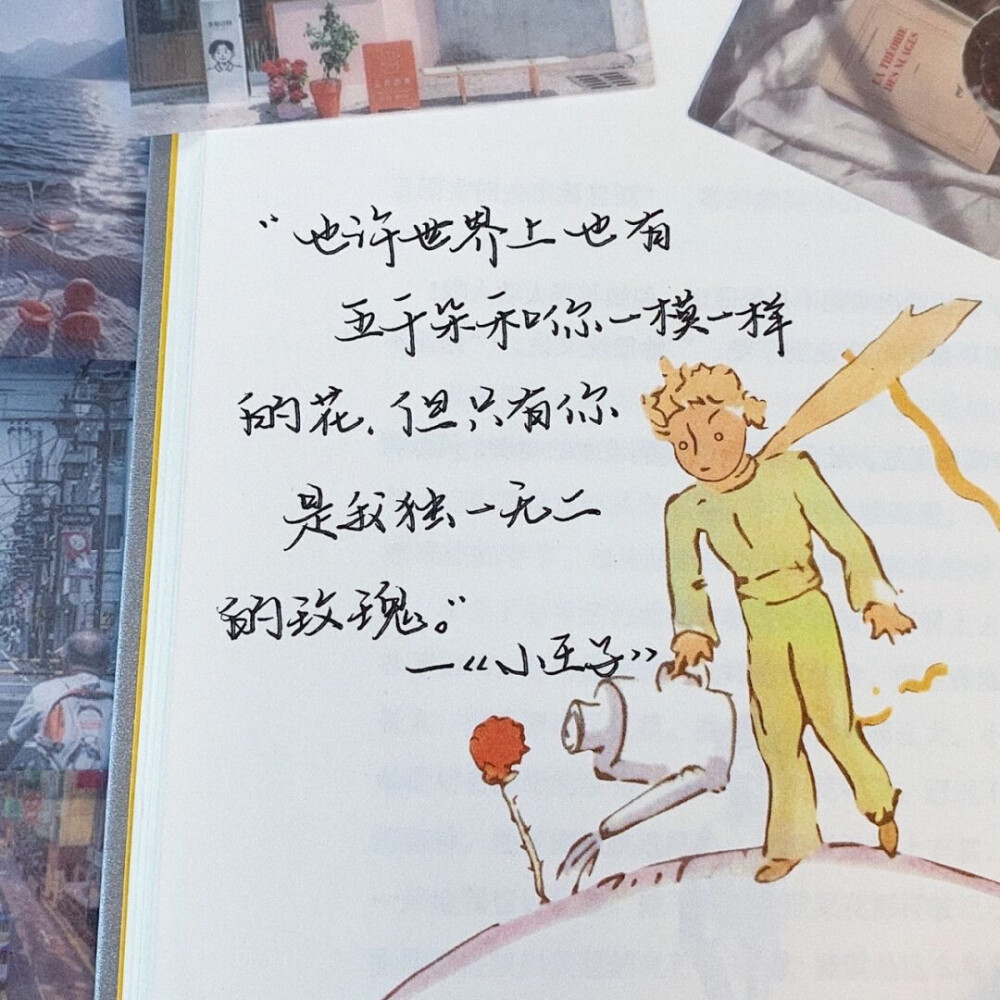 “也许世界上也有
五千朵和你一模一样
的花,但只有你
是我独一无二
的玫瑰。”
—《小王子》
LA THÉORIE
DES NUAGES